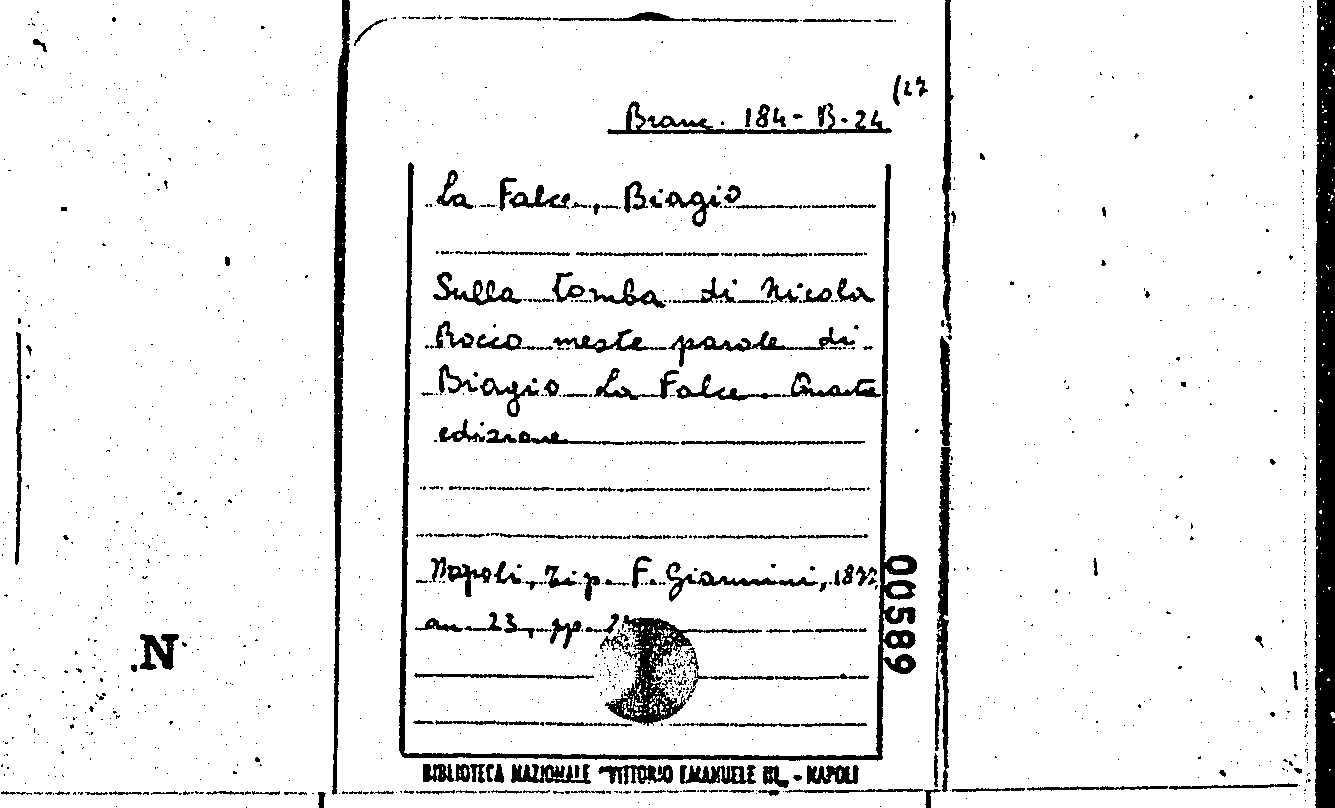 (27
Branc. 184-B-24
La Falce, Biagio
Sulla tomba di Nicola
Rocco meste parole di
Biagio La Falce. Quarta
edizione
Napoli, Tip. F. Giannini,
cm. 23, pp.
00589
N
BIBLIOTECA NAZIONALE "VITTORIO EMANUELE III„ - NAPOLI